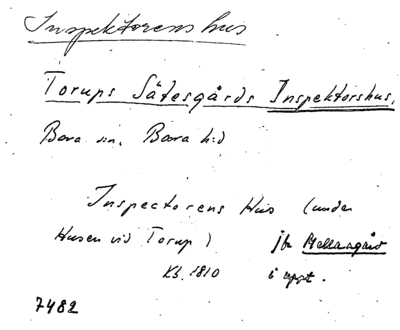 Inspektorens hus
Torups Sätesgårds Inspektorshus.
Bara sn. Bara hd
Inspectorens Hus (under
Husen vid Torup) jfr Mellangård
Kb. 1810 i uppt.
7482